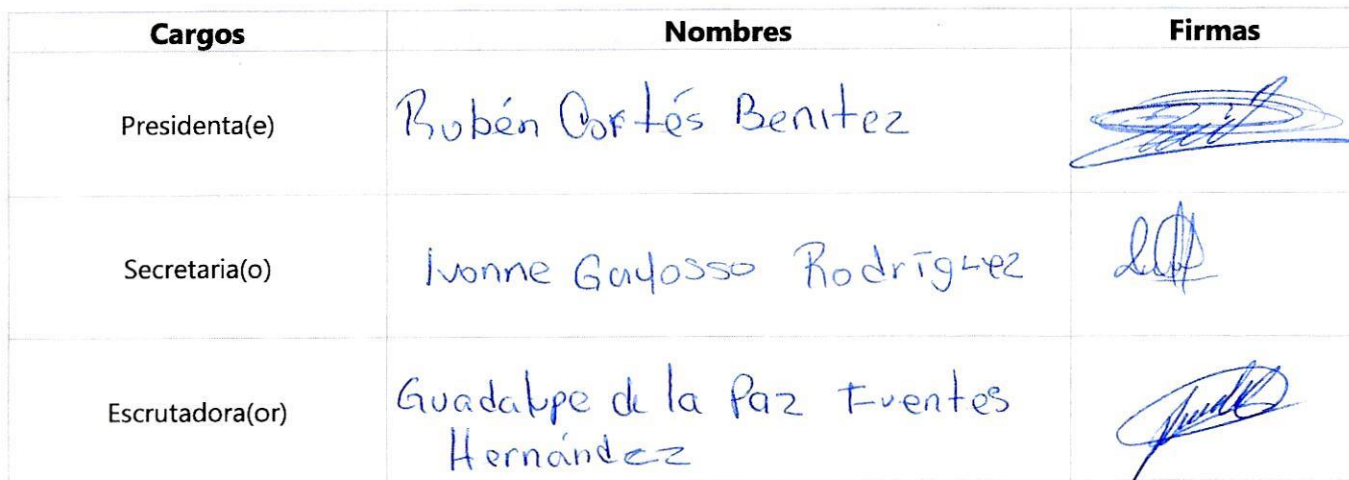 Cargos Nombres Firmas
Presidenta(e) Rubén Cortés Benitez
Secretaria(o) Ivonne Gayosso Rodríguez
Escrutadora(or) Guadalupe de la Paz Fuentes
Hernández